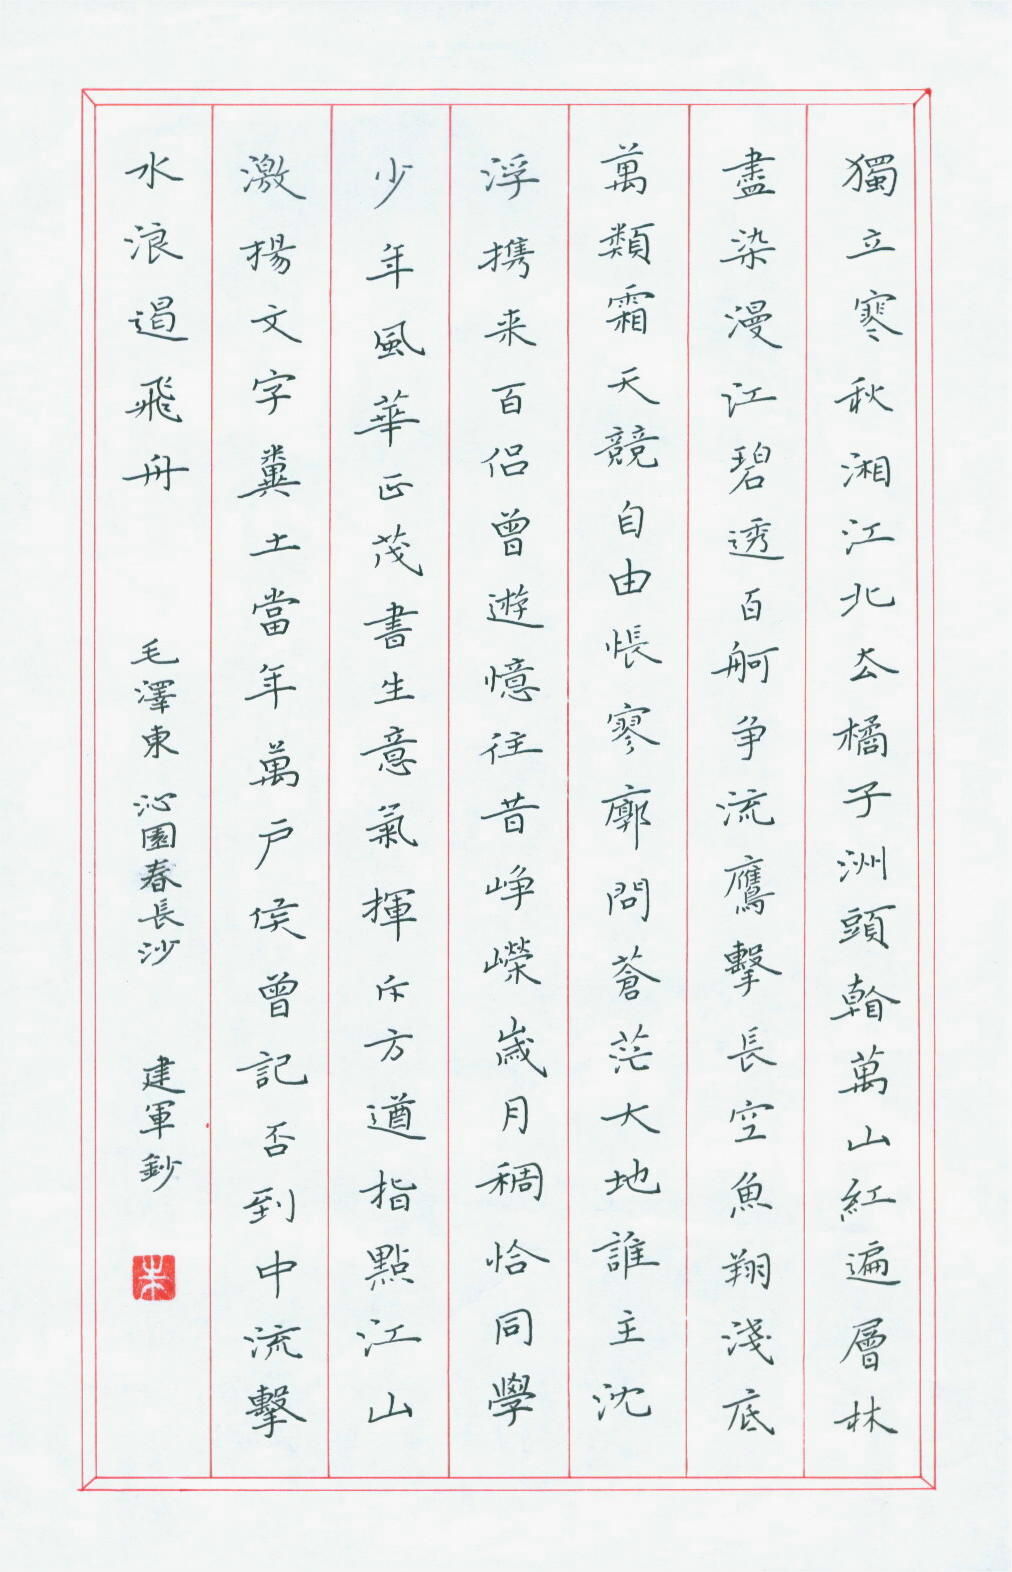 獨立寒秋湘江北去橘子洲頭看萬山紅遍層林
盡染漫江碧透百舸争流鷹擊長空魚翔淺底
萬類霜天競自由悵寥廓問蒼茫大地誰主沈
浮攜来百侣曾遊憶往昔崢嶸歲月稠恰同學
少年風華正茂書生意氣揮斥方遒指點江山
激揚文字糞土當年萬户侯曾記否到中流擊
水浪遏飛舟
毛澤東 沁園春長沙
建軍鈔
朱